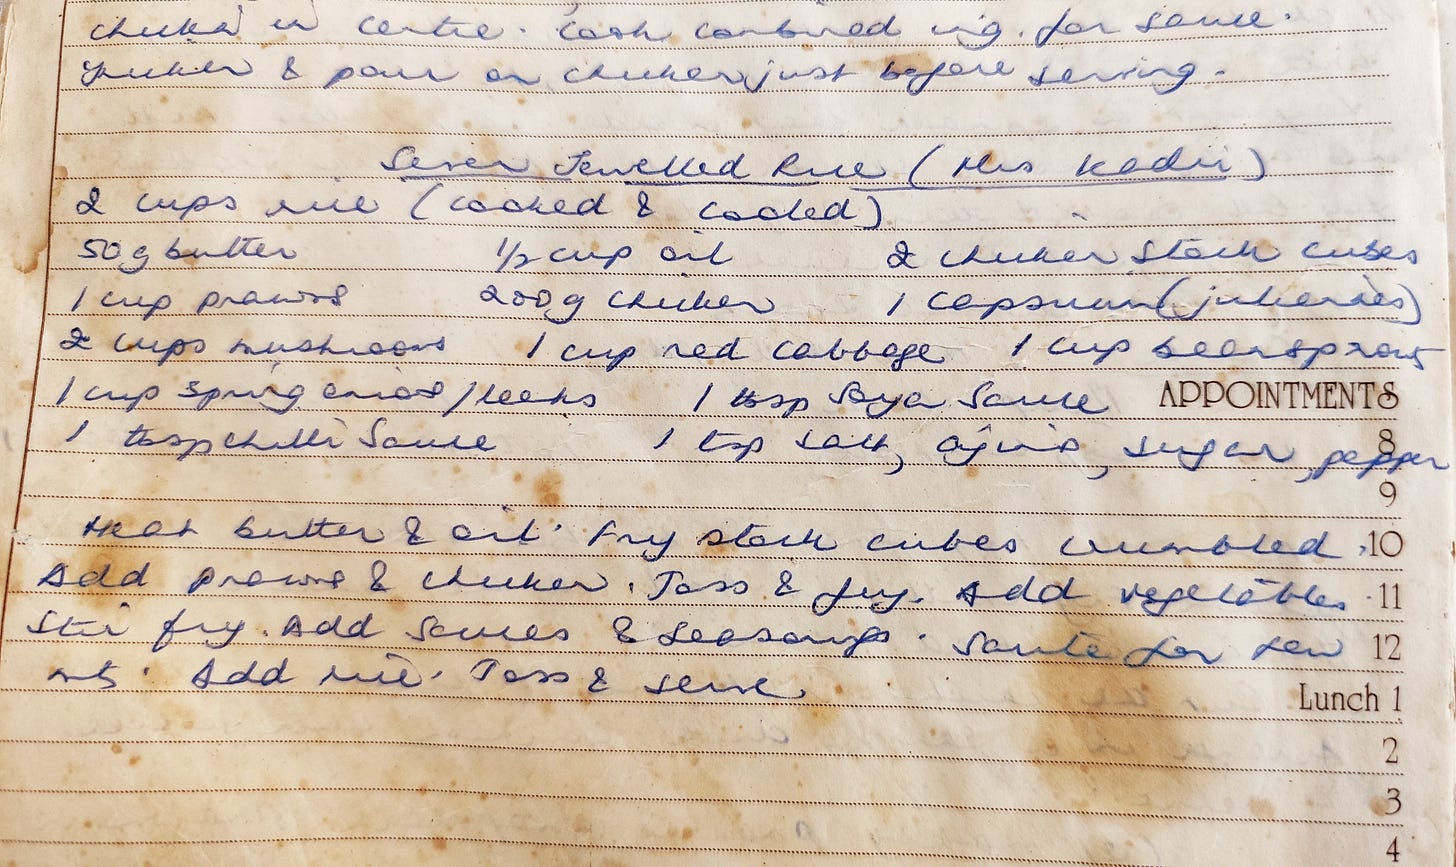 chicken in centre. Cook combined ing. for sauce.
Thicken & pour on chicken just before serving.
Seven Jewelled Rice (Mrs Kadir)
2 cups rice (cooked & cooled)
50g butter 1/2 cup oil 2 chicken stock cubes
1 cup prawns 200g chicken 1 capsicum (juliennes)
2 cups mushrooms 1 cup red cabbage 1 cup beansprouts
1 cup spring onions/leeks 1 tbsp Soya Sauce APPOINTMENTS
1 tbsp chilli Sauce 1 tsp salt, ajino, sugar, pepper 8
9
Heat butter & oil. Fry stock cubes crumbled. 10
Add prawns & chicken. Toss & fry. Add vegetables. 11
Stir fry. Add sauces & seasonings. Saute for few 12
mts. Add rice. Toss & serve. Lunch 1
2
3
4